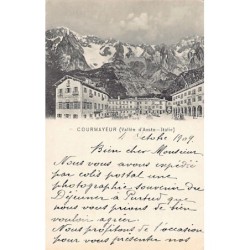 COURMAYEUR (Vallée d'Aoste - Italie)
octobre 1909
Bien cher Monsieur
Nous vous avons expédié
par colis postal une
photographie, souvenir du
Déjeuner à que
nous vous prions de bien
vouloir agréer.
Nous profitons de l'occasion
pour vous présenter nos